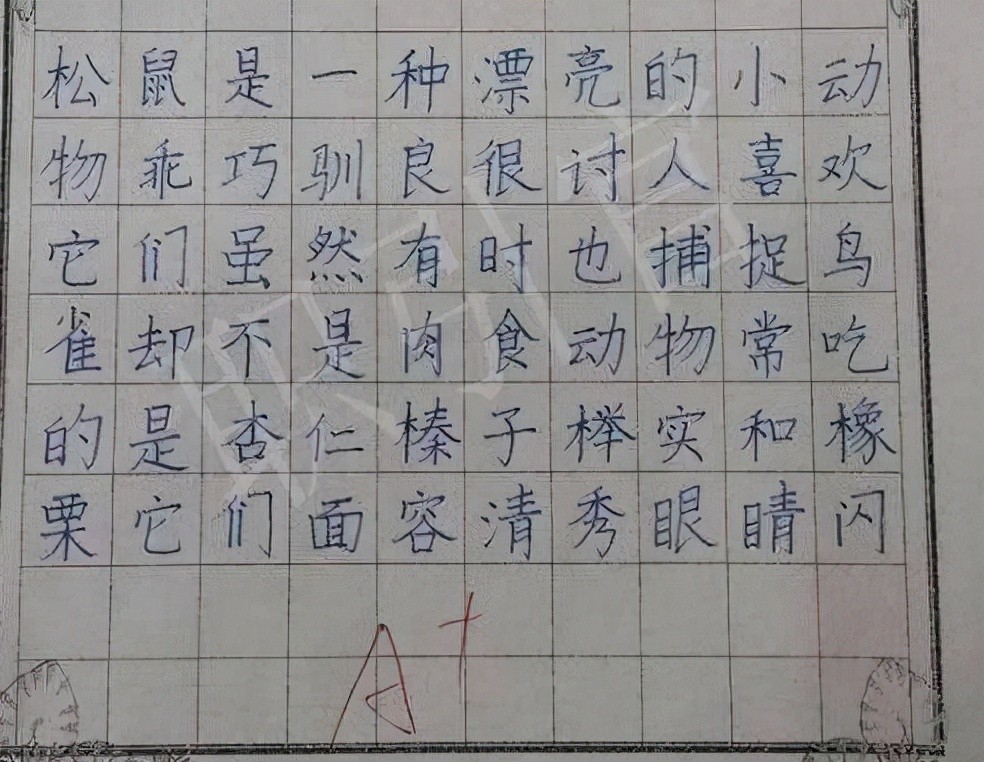 松鼠是一种漂亮的小动
物乖巧驯良很讨人喜欢
它们虽然有时也捕捉鸟
雀却不是肉食动物常吃
的是杏仁榛子榉实和橡
栗它们面容清秀眼睛闪
A+